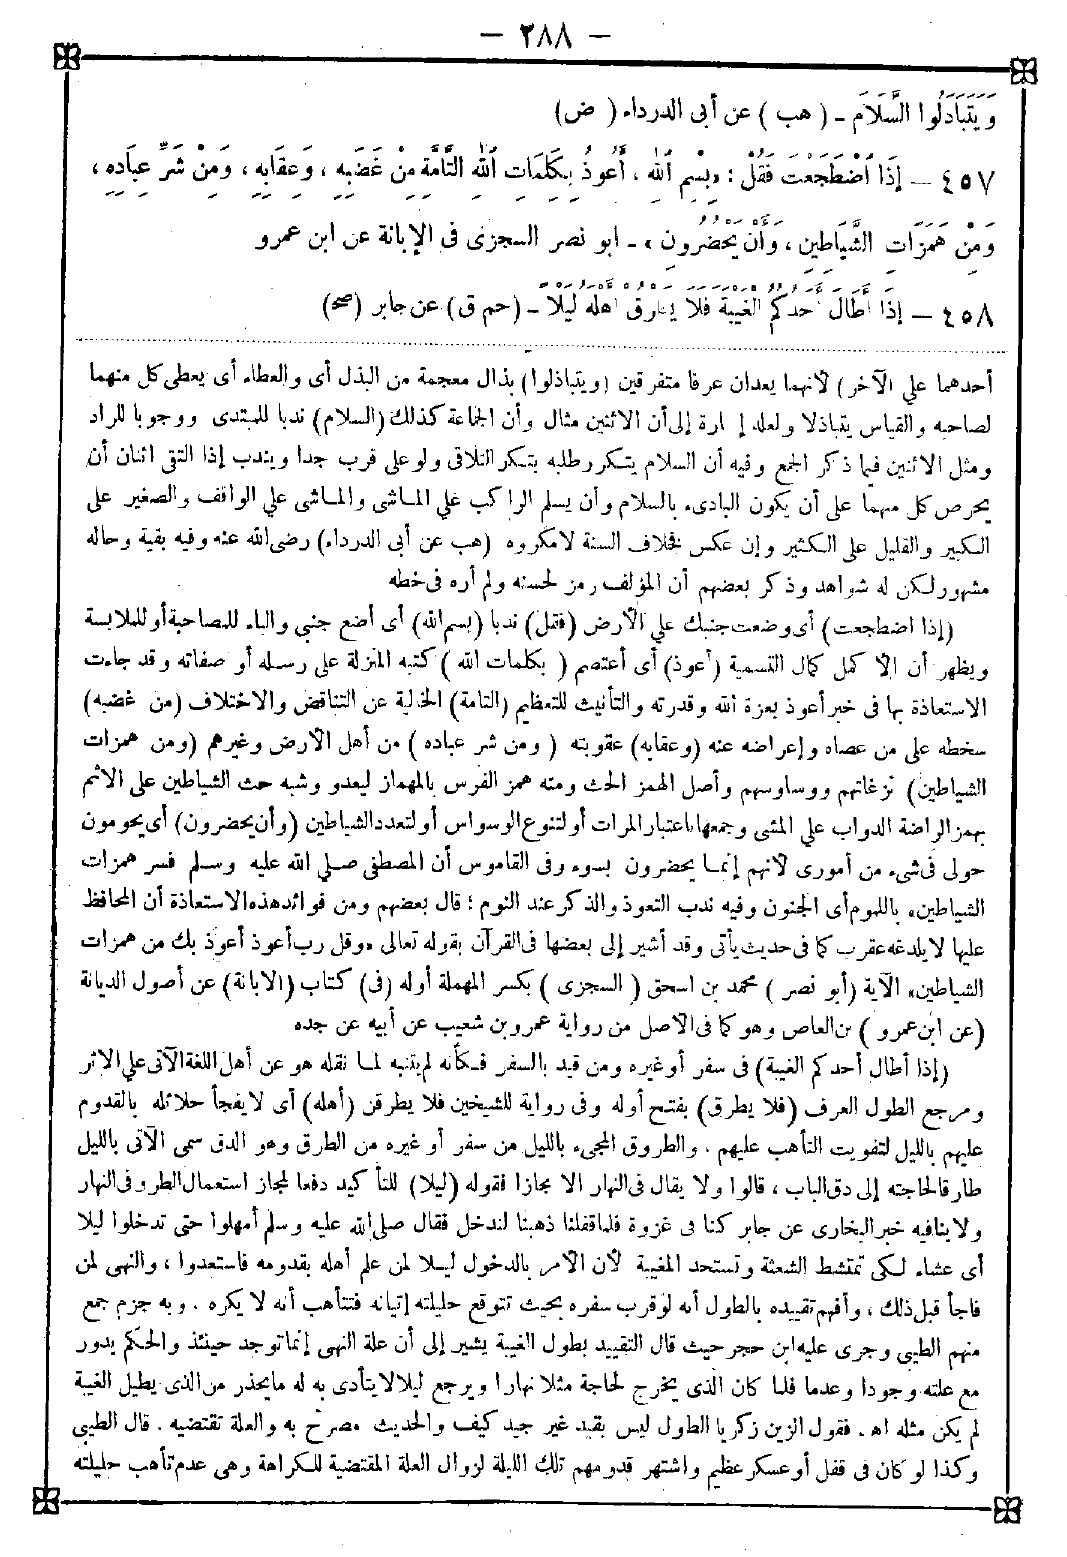 — ٢٨٨ —
وَيَتَبَاذَلُوا السَّلَامَ ـ ( هب ) عن أبى الدرداء ( ض )
٤٥٧ — إِذَا اضْطَجَعْتَ فَقُلْ : «بِسْمِ اللهِ ، أَعُوذُ بِكَلِمَاتِ اللهِ التَّامَّةِ مِنْ غَضَبِهِ ، وَعِقَابِهِ ، وَمِنْ شَرِّ عِبَادِهِ ،
وَمِنْ هَمَزَاتِ الشَّيَاطِينِ ، وَأَنْ يَحْضُرُونِ » ـ ابو نصر السجزى فى الإبانة عن ابن عمرو
٤٥٨ — إِذَا أَطَالَ أَحَدُكُمُ الْغَيْبَةَ فَلَا يَطْرُقْ أَهْلَهُ لَيْلًا ـ (حم ق) عن جابر (صح)
أحدهما على الآخر) لأنهما يعدان عرفا متفرقين (ويتباذلوا) بذال معجمة من البذل أى والعطاء أى يعطى كل منهما
لصاحبه والقياس يتباذلا ولعله إشارة إلى أن الاثنين مثال وأن الجماعة كذلك (السلام) ندبا للمبتدى ووجوبا للراد
ومثل الاثنين فيما ذكر الجمع وفيه أن السلام يتكرر طلبه بتكرر التلاقى ولو على قرب جدا ويندب إذا التقى اثنان أن
يحرص كل منهما على أن يكون البادىء بالسلام وأن يسلم الراكب على الماشى والماشى على الواقف والصغير على
الكبير والقليل على الكثير وإن عكس فخلاف السنة لا مكروه (هب عن أبى الدرداء) رضى الله عنه وفيه بقية وحاله
مشهور لكن له شواهد وذكر بعضهم أن المؤلف رمز لحسنه ولم أره فى خطه
(إذا اضطجعت) أى وضعت جنبك على الأرض (فقل) ندبا (بسم الله) أى أضع جنبى والباء للمصاحبة أو للملابسة
ويظهر أن الأكمل كمال التسمية (أعوذ) أى أعتصم ( بكلمات الله ) كتبه المنزلة على رسله أو صفاته وقد جاءت
الاستعاذة بها فى خبر أعوذ بعزة الله وقدرته والتأنيث للتعظيم (التامة) الخالية عن التناقض والاختلاف (من غضبه)
سخطه على من عصاه وإعراضه عنه (وعقابه) عقوبته ( ومن شر عباده ) من أهل الأرض وغيرهم (ومن همزات
الشياطين) نزغاتهم ووساوسهم وأصل الهمز الحث ومنه همز الفرس بالمهماز ليعدو وشبه حث الشياطين على الاثم
بهمز الراضة الدواب على المشى وجمعها باعتبار المرات أو لتنوع الوسواس أو لتعدد الشياطين (وأن يحضرون) أى يحومون
حولى فى شىء من أمورى لأنهم إنما يحضرون بسوء وفى القاموس أن المصطفى صلى الله عليه وسلم فسر همزات
الشياطين، بالموم أى الجنون وفيه ندب التعوذ والذكر عند النوم ؛ قال بعضهم ومن فوائد هذه الاستعاذة أن المحافظ
عليها لا يلدغه عقرب كما فى حديث يأتى وقد أشير إلى بعضها فى القرآن بقوله تعالى «وقل رب أعوذ أعوذ بك من همزات
الشياطين» الآية (أبو نصر ) محمد بن اسحق ( السجزى ) بكسر المهملة أوله (فى) كتاب (الابانة) عن أصول الديانة
(عن ابن عمرو ) بن العاص وهو كما فى الاصل من رواية عمرو بن شعيب عن أبيه عن جده
(إذا أطال أحدكم الغيبة) فى سفر أو غيره ومن قيد بالسفر فكأنه لم يتنبه لما نقله هو عن أهل اللغة الآتى على الاثر
ومرجع الطول العرف (فلا يطرق) بفتح أوله وفى رواية للشيخين فلا يطرقن (أهله) أى لا يفجأ حلائله بالقدوم
عليهم بالليل لتفويت التأهب عليهم ، والطروق المجىء بالليل من سفر أو غيره من الطرق وهو الدق سمى الآتى بالليل
طارقا لحاجته إلى دق الباب ، قالوا ولا يقال فى النهار الا مجازا فقوله (ليلا) للتأكيد دفعا لمجاز استعمال الطرو فى النهار
ولا ينافيه خبر البخارى عن جابر كنا فى غزوة فلما قفلنا ذهبنا لندخل فقال صلى الله عليه وسلم أمهلوا حتى تدخلوا ليلا
أى عشاء لكى تمتشط الشعثة وتستحد المغيبة لأن الامر بالدخول ليلا لمن علم أهله بقدومه فاستعدوا ، والنهى لمن
فاجأ قبل ذلك ، وأفهم تقييده بالطول أنه لو قرب سفره بحيث تتوقع حليلته إتيانه فتتأهب أنه لا يكره . وبه جزم جمع
منهم الطيبى وجرى عليه ابن حجر حيث قال التقييد بطول الغيبة يشير إلى أن علة النهى إنما توجد حينئذ والحكم يدور
مع علته وجودا وعدما فلما كان الذى يخرج لحاجة مثلا نهارا ويرجع ليلا لا يتأدى به له ما يحذر من الذى يطيل الغيبة
لم يكن مثله اهـ . فقول الزين زكريا الطول ليس بقيد غير جيد كيف والحديث مصرح به والعلة تقتضيه . قال الطيبى
وكذا لو كان فى قفل أو عسكر عظيم واشتهر قدومهم تلك الليلة لزوال العلة المقتضية للكراهة وهى عدم تأهب حليلته